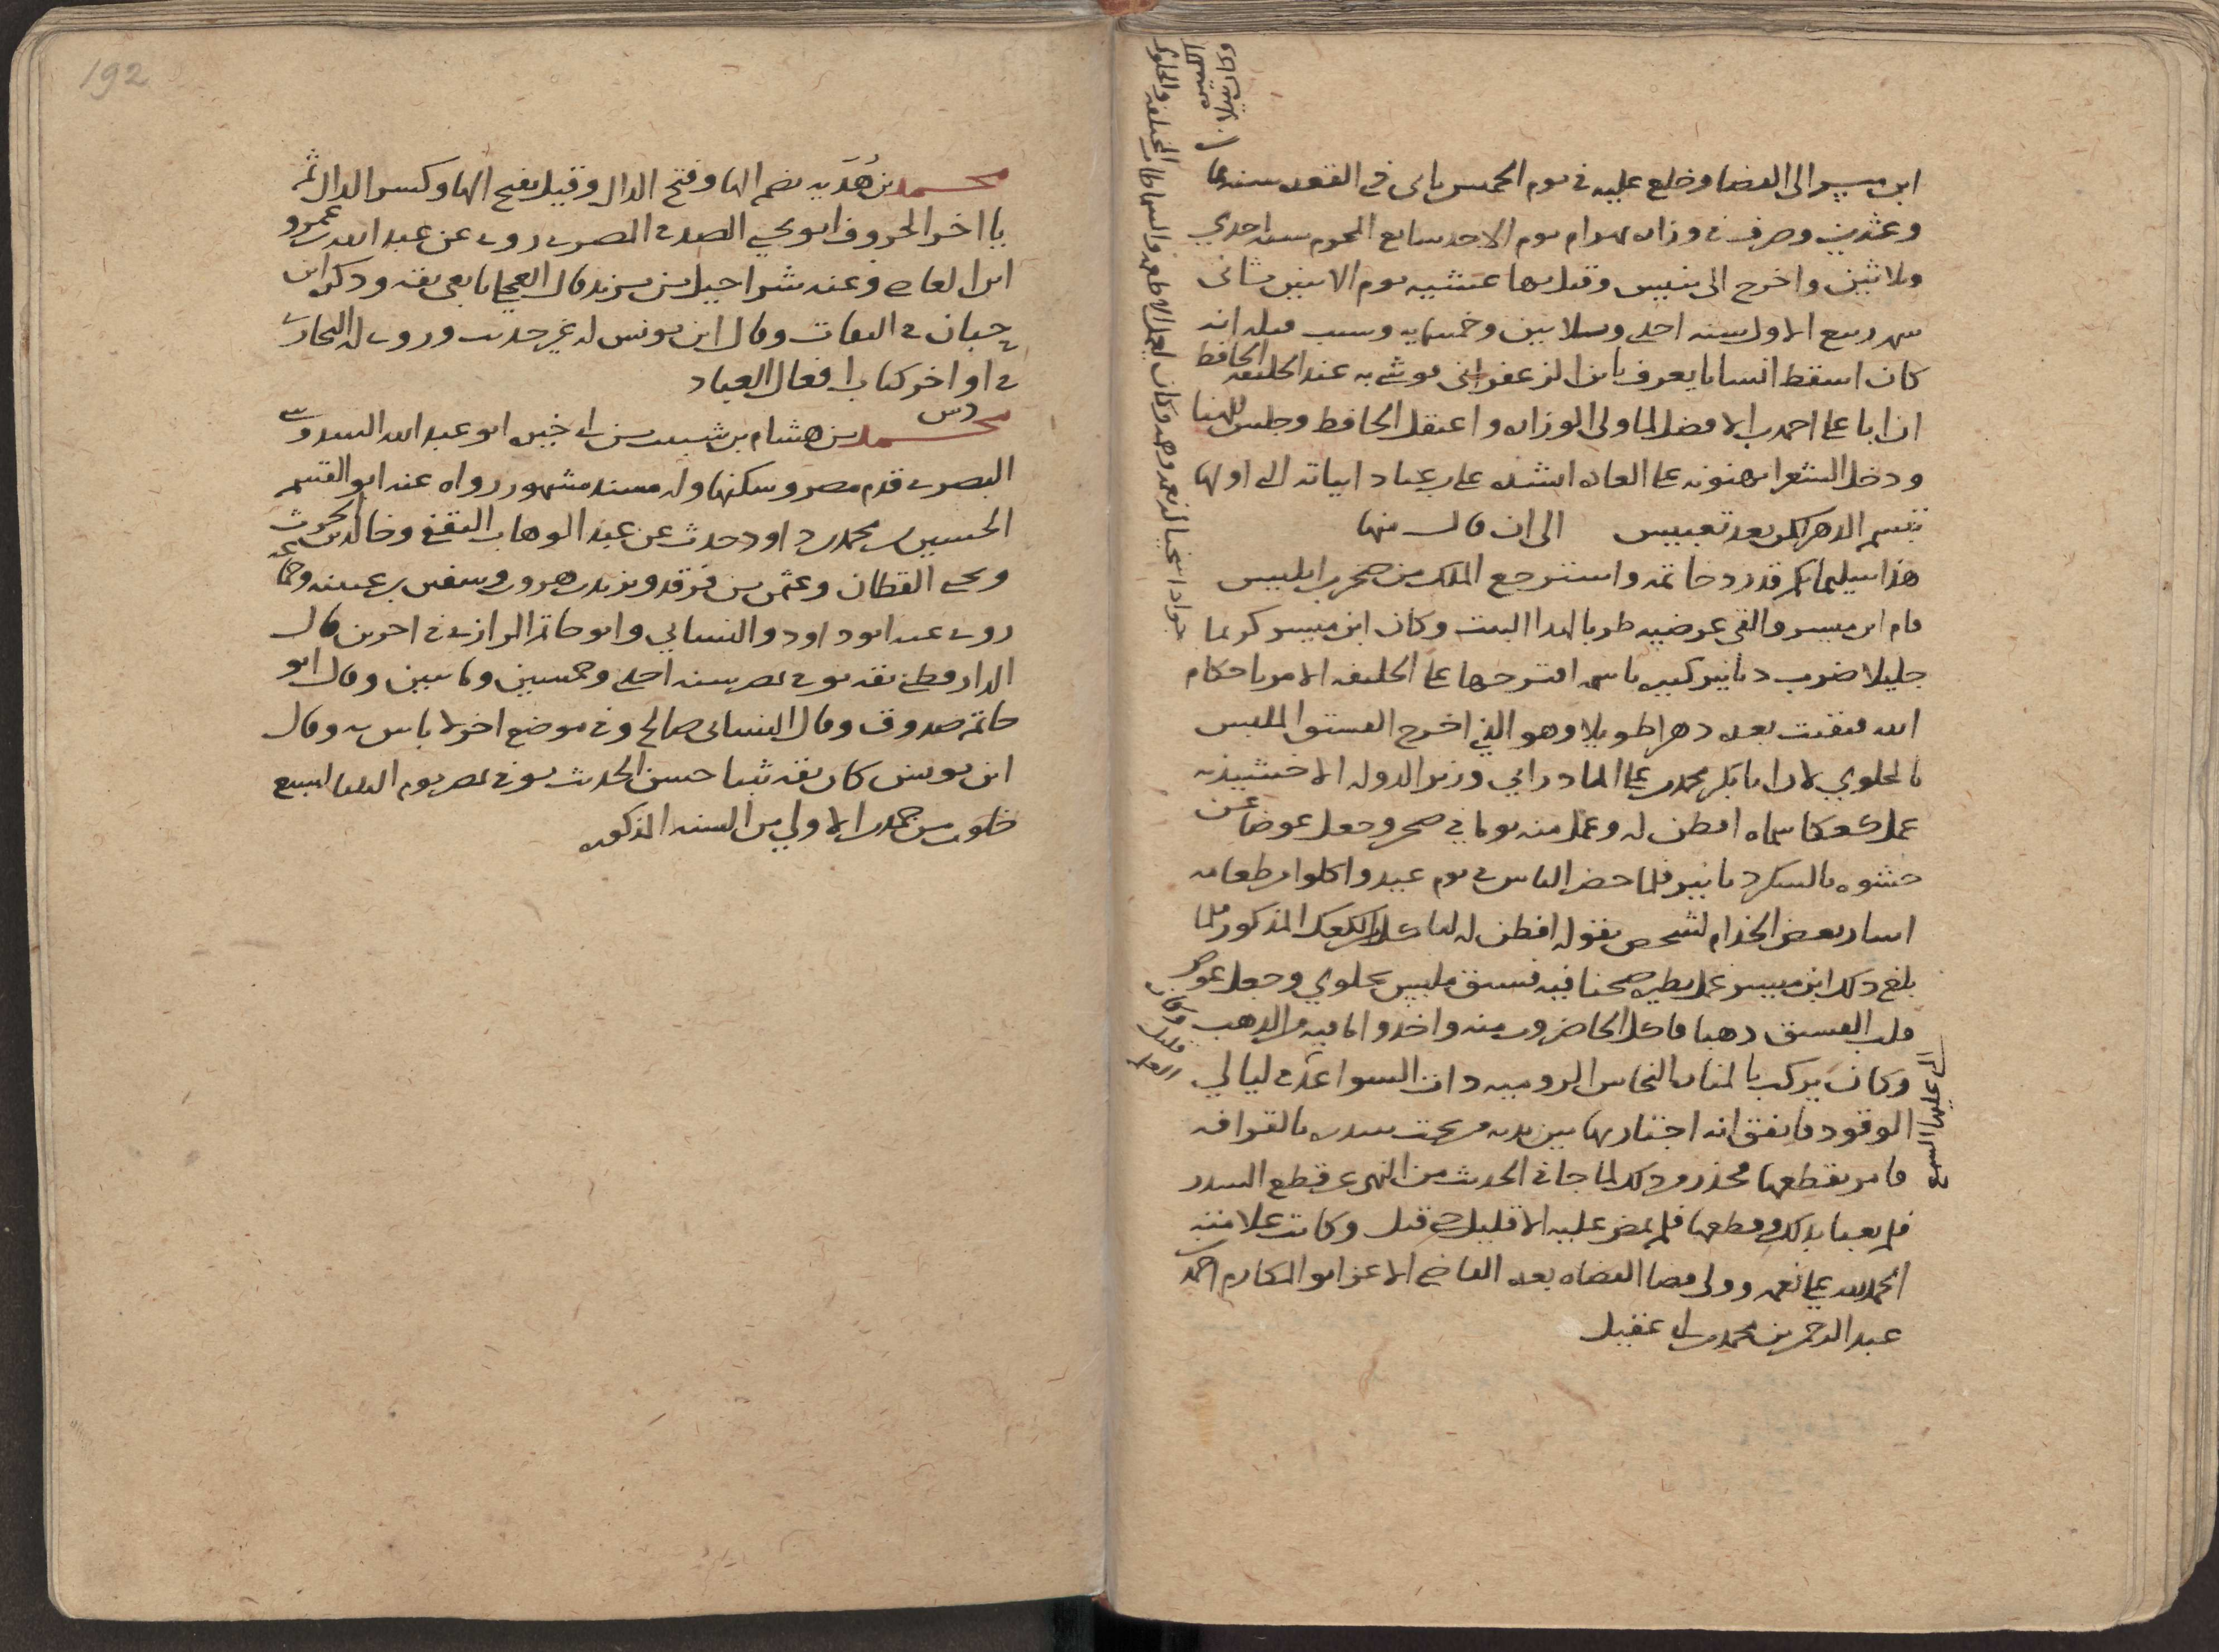 ابن ميسر الى القضا وخلع عليه في يوم الخميس ثاني ذي القعده سنه ثمان
وعشرين وصرف في وزاره بهرام يوم الاحد سابع المحرم سنه احدي
وثلاثين واخرج الى تنيس وقتل بها عشيه يوم الاثنين ثاني
شهر ربيع الاول سنه احدى وثلاثين وخمسمايه وسبب قتله انه
كان اسقط انسانا يعرف بابن الزعفراني فوشى به عند الخليفه الحافظ
ان ابا علي احمد بن الافضل لما ولى الوزاره واعتقل الحافظ وجلس للهنا
ودخل الشعرا يهنونه على العاده انشده علي بن عباد ابياته التي اولها
تبسم الدهر لكن بعد تعبيس الى ان قال منها
هذا سليمانكم قد رد خاتمه واسترجع الملك من صخر بن ابليس
قام ابن ميسر والقى عرضيه طربا لهذا البيت وكان ابن ميسر كريما
جليلا ضرب دنانير كبيره باسمه اقترحها على الخليفه الامر باحكام
الله فبقيت بعده دهرا طويلا وهو الذي اخرج الفستق الملبس
بالحلوي لان ابا بكر محمد بن علي المادراني وزير الدوله الاخشيذيه
عمل كعكا سماه افطن له وعمل منه يوما في صحن وجعل عوضا عن
حشوه بالسكر دنانير فلما حضر الناس في يوم عيد واكلوا من طعامه
اشار بعض الخدام لشخص بقوله افطن له لما كل الكعك المذكور فلما
بلغ ذلك ابن ميسر عمل نظيره صحنا فيه فستق ملبس بحلوي وجعل عوض
قلب الفستق ذهبا فاكل الحاضرون منه واخذوا ما فيه من الذهب
وكان يركب بالمناره النحاس الروميه ذات السواعد في ليالي
الوقود فاتفق انه اجتاز بها بين يديه من تحت سدره بالقرافه
فامر بقطعها فحذر من ذلك لما جا في الحديث من النهي عن قطع السدر
فلم يعبا بذلك وقطعها فلم يمض عليه الا قليل حتى قتل وكانت علامته
الحمد لله على نعمه وولى قضا القضاه بعده القاضي الاعز ابو المكارم احمد
عبد الرحمن بن محمد بن ابي عقيل
جوادا سخيا لذيذه وكان يعمل الاطعمه والسماطات المختلفه والحلوى
وكان
قليل
العلم
محمد بن هُدَيه بضم الها وفتح الدال وقيل بفتح الها وكسر الدال ثم
يا اخر الحروف ابو يحيى الصدفي المصري روى عن عبد الله بن عمرو
ابن العاص وعنه شراحيل بن يزيد قال العجلي تابعي ثقه وذكره ابن
حبان في الثقات وقال ابن يونس له غير حديث وروى له البخاري
في اواخر كتاب افعال العباد
دس
محمد بن هشام بن شبيب بن ابي خيره ابو عبد الله السدوسي
البصري قدم مصر وسكنها وله مسند مشهور رواه عنه ابو القسم
الحسين بن محمد بن داود حدث عن عبد الوهاب الثقفي وخالد بن الحرث
ويحيى القطان وعثمن بن فرقد ويزيد بن هرون وسفين بن عيينه وجماعه
روى عنه ابو داود والنسائي وابو حاتم الرازي في اخرين قال
الدارقطني ثقه توفي بمصر سنه احدى وخمسين ومايتين وقال ابو
حاتم صدوق وقال النسائي صالح وفي موضع اخر لا باس به وقال
ابن يونس كان ثقه ثبتا حسن الحديث توفي بمصر يوم الثلثا لسبع
خلون من جمادى الاولي من السنه المذكوره
192